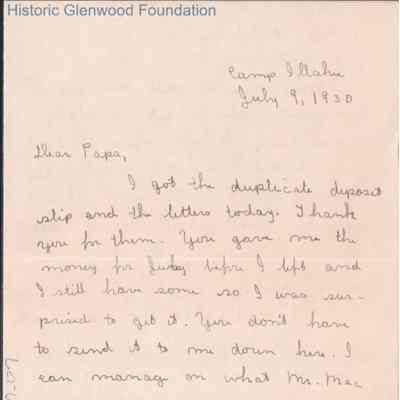 Historic Glenwood Foundation
Camp Illahee
July 9, 1930
Dear Papa,
I got the duplicate deposit
slip and the letters today. Thank
you for them. You gave me the
money for July before I left and
I still have some so I was sur-
prised to get it. You don't have
to send it to me down here. I
can manage on what Mr. Mac